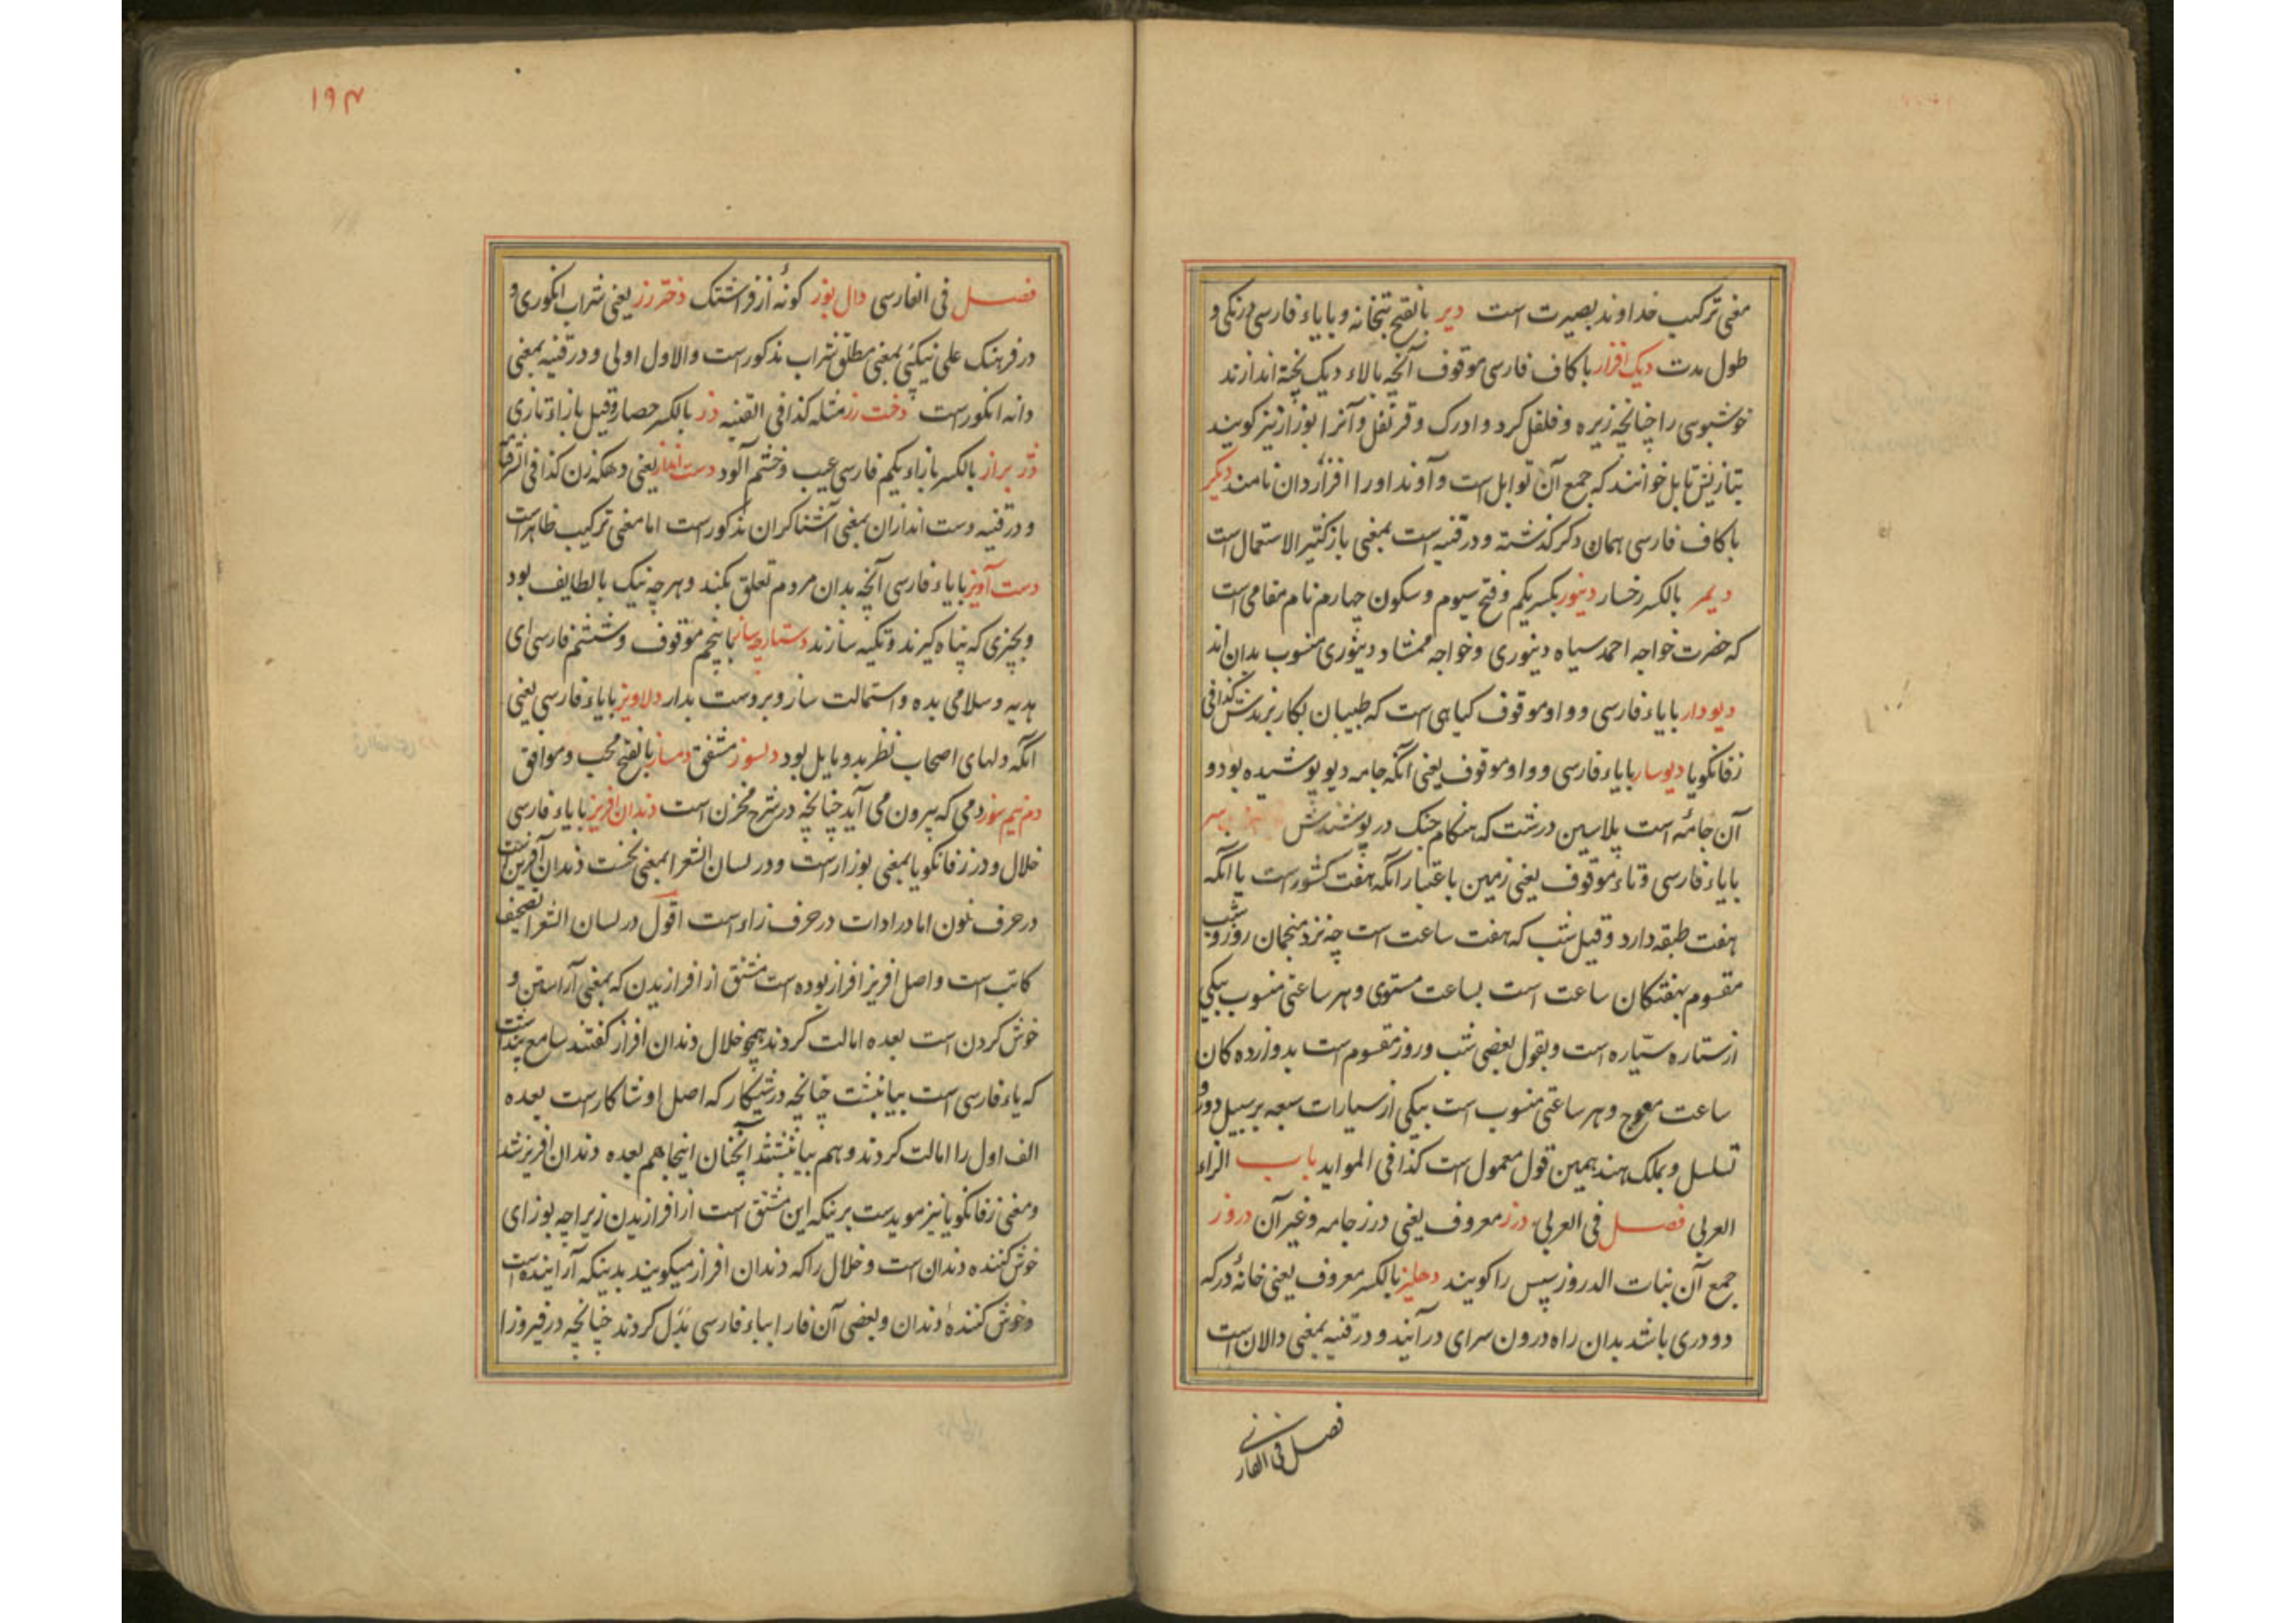 معنی ترکیب خداوند بصیرت است دیر بالفتح بتخانه و بایاء فارسی درنکی و
طول مدت دیک افزار باکاف فارسی موقوف آنچه بالاء دیک پخته اندازند
خوشبوی را چنانچه زیره و فلفل کرد و ادرک و قرنفل و آنرا بوزار نیز کویند
بتازیش تابل خوانند که جمع آن توابل است و آوند او را افزاردان نامند دیکر
باکاف فارسی همان دکر کذشته و در قنیه است بمعنی باز کثیر الاستعمال است
دیمر بالکسر رخسار دینور بکسر یکم و فتح سیوم و سکون چهارم نام مقامی است
که حضرت خواجه احمد سیاه دینوری و خواجه ممشاد دینوری منسوب بدان اند
دیودار بایاء فارسی و واو موقوف کیاهی است که طبیبان بکار برندش کذا فی
زفانکویا دیوسار بایاء فارسی و واو موقوف یعنی آنکه جامه دیو پوشیده بود و
آن جامه است پلاسین درشت که هنکام جنک در پوشندش
بایاء فارسی و تاء موقوف یعنی زمین باعتبار آنکه هفت کشور است یا آنکه
هفت طبقه دارد و قیل شب که هفت ساعت است چه نزد منجمان روز و شب
مقسوم بهفتکان ساعت است بساعت مستوی و هر ساعتی منسوب بیکی
از ستاره سیّاره است و بقول بعضی شب و روز مقسوم است بدوازده کان
ساعت معوج و هر ساعتی منسوب است بیکی از سیارات سبعه بر سبیل دور و
تسلسل و بملک هند همین قول معمول است کذا فی المواید باب الزاء
العربی فصل فی العربی درز معروف یعنی درز جامه و غیر آن دروز
جمع آن بنات الدروز سپس را کویند دهلیز بالکسر معروف یعنی خانهٔ در که
دو دری باشد بدان راه درون سرای درآیند و در قنیه بمعنی دالان است
فصل فی الفارسی
۱۹۴
فصل فی الفارسی دال بوز کونهٔ از فراشتک دختر رز یعنی شراب انکوری و
در فرهنک علی نیکپی بمعنی مطلق شراب مذکور است و الاول اولی و در قنیه بمعنی
دانه انکور است دخت رز مثله کذا فی القنیه دز بالکسر حصار و قیل بازاء تازی
دژ براز بالکسر بازاء یکم فارسی عیب و خشم آلود دست انداز یعنی دهکه زن کذا فی
و در قنیه دست اندازان بمعنی آشناکران مذکور است اما معنی ترکیب ظاهر است
دست آویز بایاء فارسی آنچه بدان مردم تعلق بکند و هرچه نیک بالطایف بود
و بچیزی که پناه کیرند و تکیه سازند دستارچه ساز باپنجم موقوف و ششم فارسی ای
هدیه و سلامی بده و استمالت ساز و بر دست بدار دلاویز بایاء فارسی یعنی
آنکه دلهای اصحاب نظر بدو مایل بود دلسوز مشفق دمساز بالفتح محب و موافق
دم نیم سوز دمی که بیرون می آید چنانچه در شرح مخزن است دندان افریز بایاء فارسی
خلال و در زفانکویا بمعنی بوزار است و در لسان الشعرا بمعنی نخست دندان آفرین است
در حرف نون اما در ادات در حرف زاء است اقول در لسان الشعرا تصحیف
کاتب است و اصل افریز افراز بوده است مشتق از افرازیدن که بمعنی آراستن و
خوش کردن است بعده امالت کردند همچو خلال دندان افراز کفتند سامع پنداشت
که یاء فارسی است بیا نبشت چنانچه در شیکار که اصل او شاکار است بعده
الف اول را امالت کردند و هم بیا نبشتند آنچنان اینجا هم بعده دندان افریز شد
و معنی زفانکویا نیز موید است برینکه این مشتق است از افرازیدن زیراچه بوزار ای
خوش کننده دندان است و خلال را که دندان افراز میکویند بدینکه آراینده است
و خوش کنندهٔ دندان و بعضی آن فا را بباء فارسی بدّل کردند چنانچه در فیروز ا